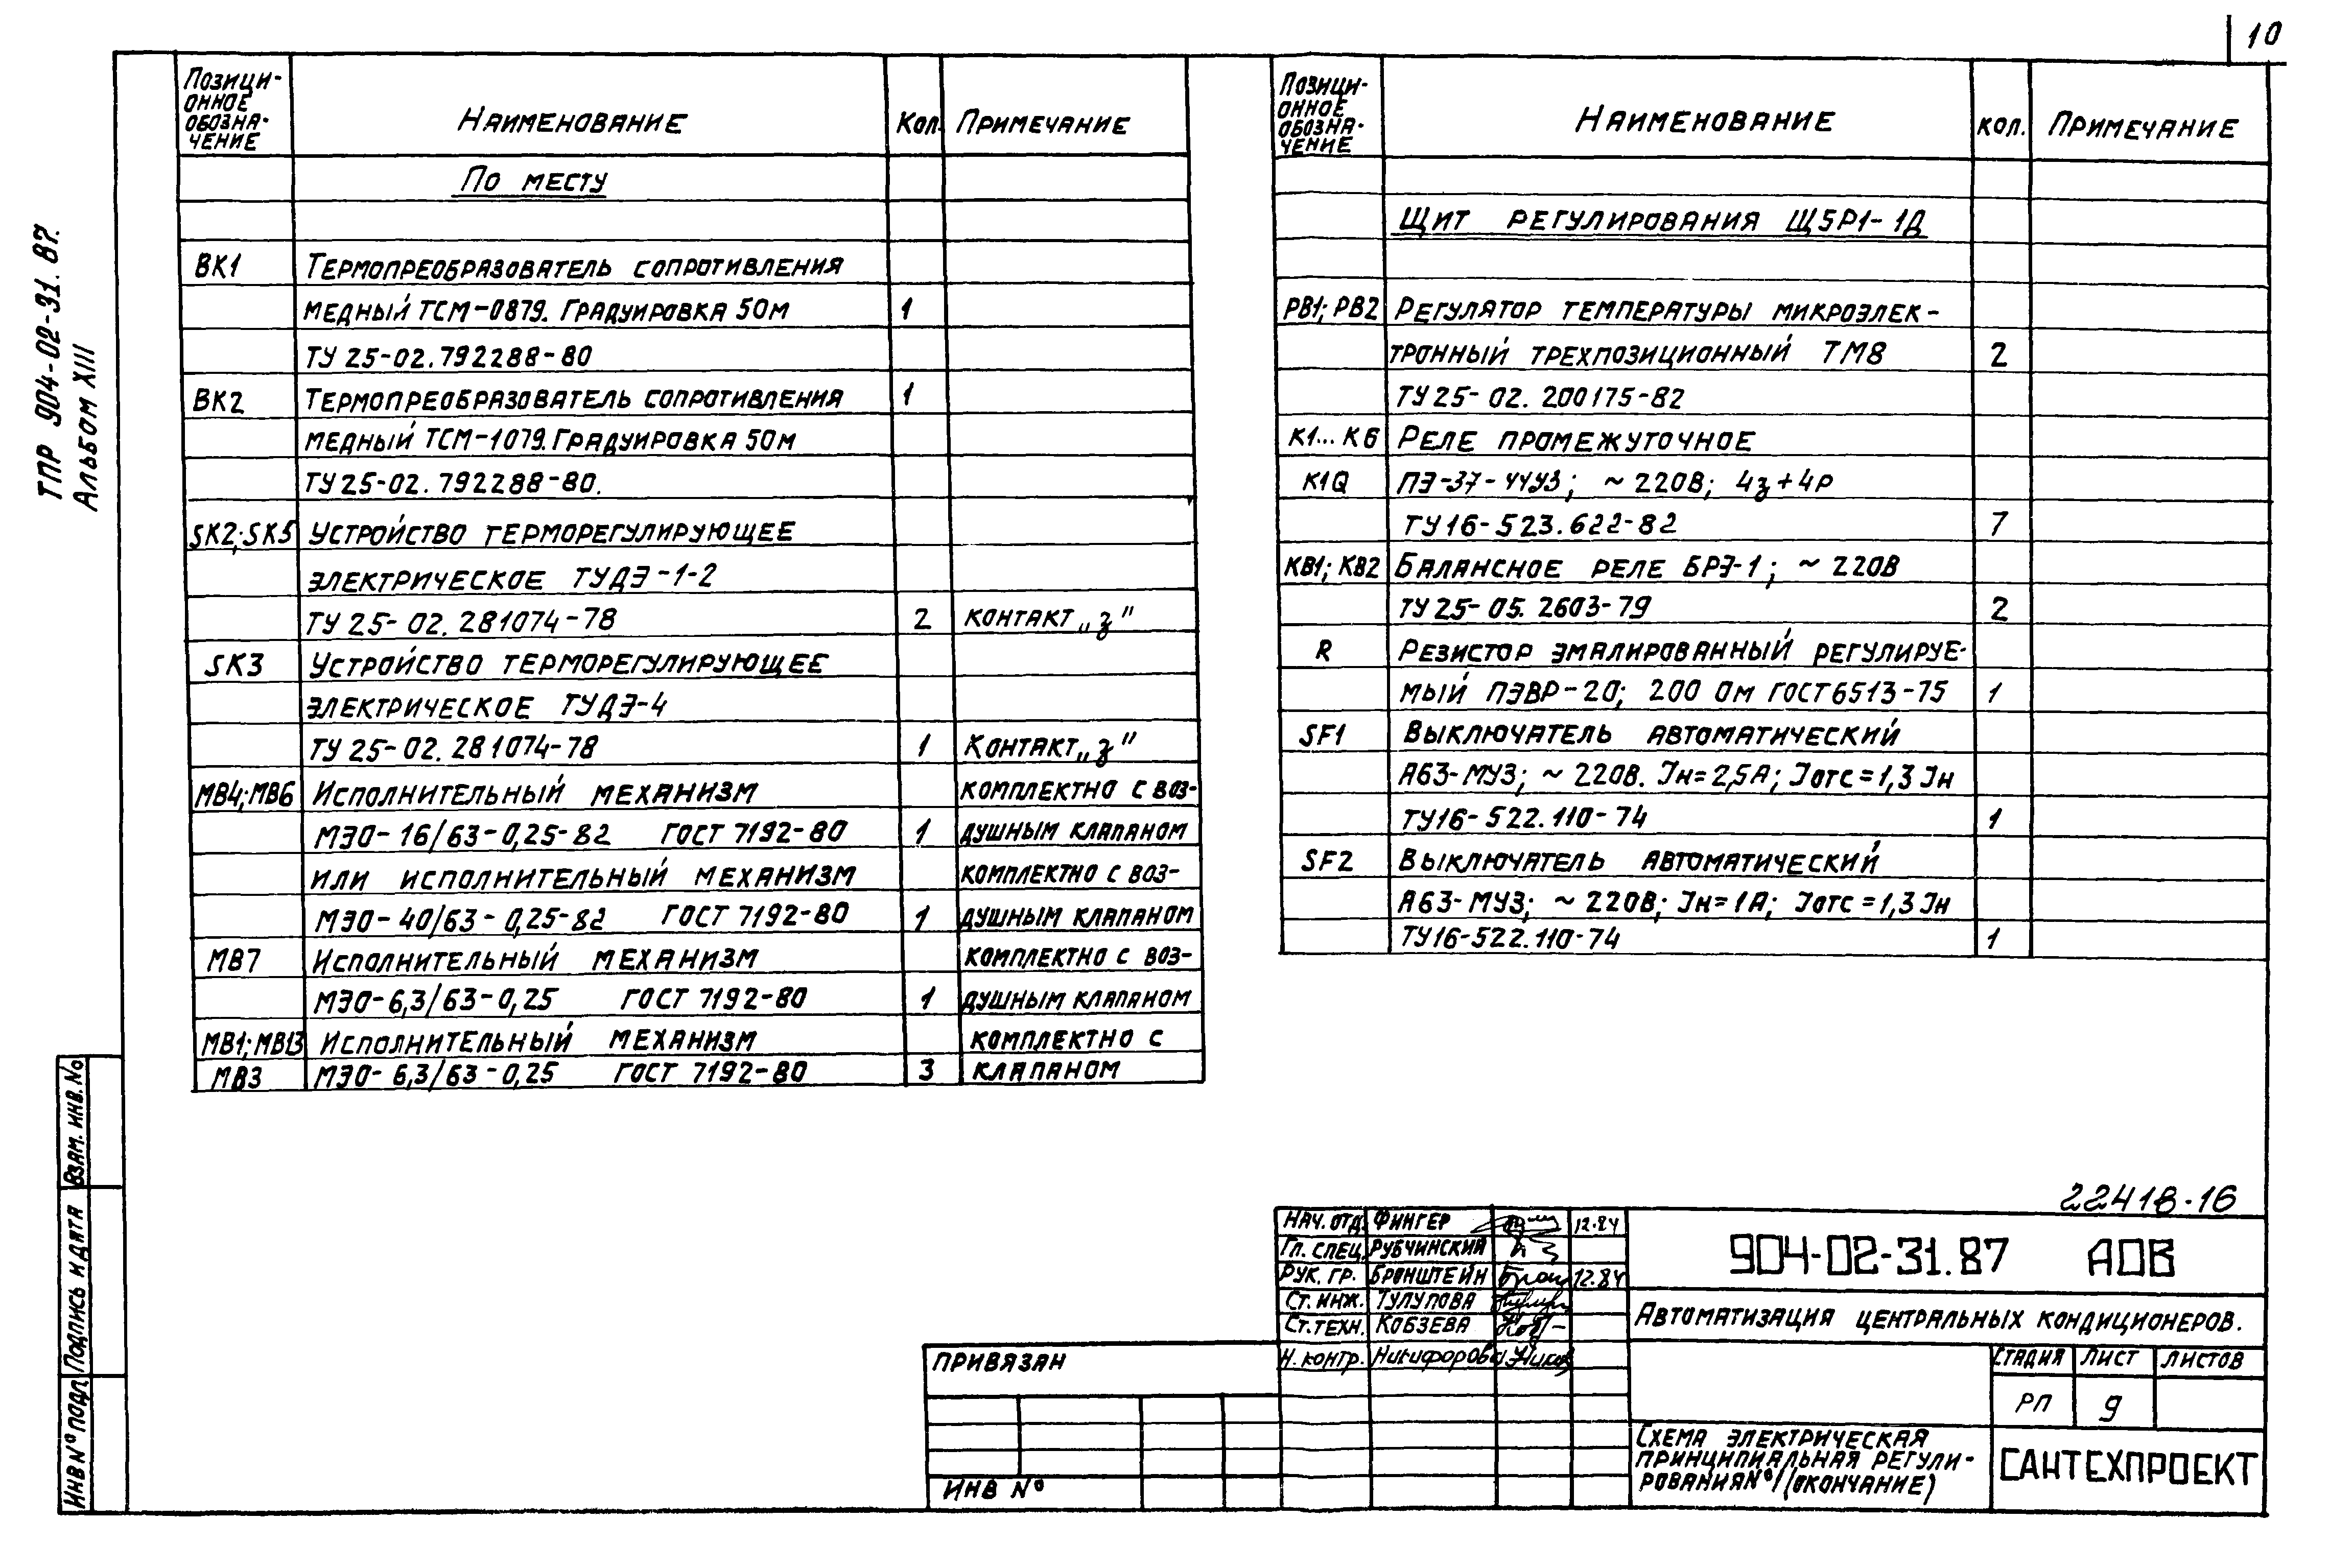 10
ТПР 904-02-31.87.
Альбом XIII
Позици-
онное
обозна-
чение
Наименование
Кол.
Примечание
По месту
ВК1 Термопреобразователь сопротивления
медный ТСМ-0879. Градуировка 50м 1
ТУ 25-02.792288-80
ВК2 Термопреобразователь сопротивления 1
медный ТСМ-1079. Градуировка 50м
ТУ 25-02.792288-80.
SK2; SK5 Устройство терморегулирующее
электрическое ТУДЭ-1-2
ТУ 25-02.281074-78 2 контакт „з"
SK3 Устройство терморегулирующее
электрическое ТУДЭ-4
ТУ 25-02.281074-78 1 Контакт „з"
МВ4; МВ6 Исполнительный механизм комплектно с воз-
МЭО-16/63-0,25-82 ГОСТ 7192-80 1 душным клапаном
или исполнительный механизм комплектно с воз-
МЭО-40/63-0,25-82 ГОСТ 7192-80 1 душным клапаном
МВ7 Исполнительный механизм комплектно с воз-
МЭО-6,3/63-0,25 ГОСТ 7192-80 1 душным клапаном
МВ1; МВ13 Исполнительный механизм комплектно с
МВ3 МЭО-6,3/63-0,25 ГОСТ 7192-80 3 клапаном
Позици-
онное
обозна-
чение
Наименование
кол.
Примечание
Щит регулирования Щ5Р1-1Д
РВ1; РВ2 Регулятор температуры микроэлек-
тронный трехпозиционный ТМ8 2
ТУ 25-02.200175-82
К1...К6 Реле промежуточное
К1Q ПЭ-37-44У3; ~220В; 4з+4р
ТУ16-523.622-82 7
КВ1; КВ2 Балансное реле БРЭ-1; ~220В
ТУ 25-05.2603-79 2
R Резистор эмалированный регулируе-
мый ПЭВР-20; 200 Ом ГОСТ 6513-75 1
SF1 Выключатель автоматический
А63-МУ3; ~220В. Iн=2,5А; Iотс=1,3 Iн
ТУ16-522.110-74 1
SF2 Выключатель автоматический
А63-МУ3; ~220В; Iн=1А; Iотс=1,3 Iн
ТУ16-522.110-74 1
22418-16
Нач. отд. Фингер 12.84
Гл. спец. Рубчинский
Рук. гр. Бронштейн 12.84
Ст. инж. Тулупова
Ст. техн. Кобзева
Н. контр. Никифорова
904-02-31.87 АОВ
Автоматизация центральных кондиционеров.
стадия лист листов
РП 9
Схема электрическая
принципиальная регули-
рования №1 (окончание)
САНТЕХПРОЕКТ
Привязан
Инв №
Взам. инв. №
Подпись и дата
Инв № подл.